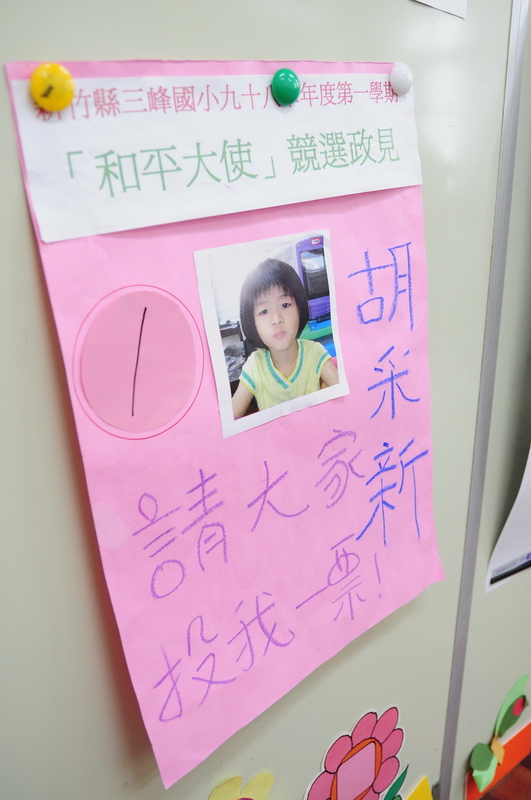 新竹縣三峰國小九十八 年度第一學期
「和平大使」競選政見
1
胡采新
請大家
投我一票!